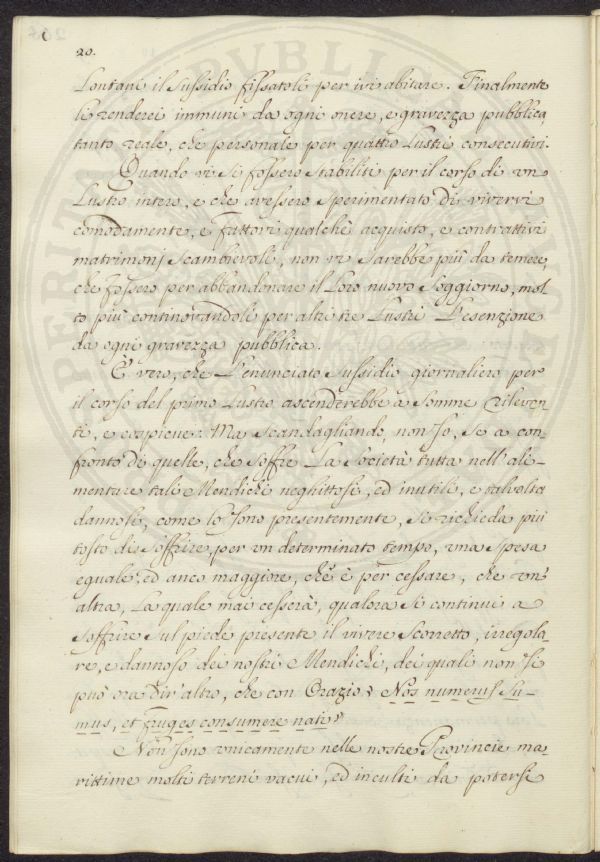 20.
Lontani il Sussidio fissatoli per ivi abitare. Finalmente
li renderei immuni da ogni onere, e gravezza pubblica
tanto reale, che personale per quattro Lustri consecutivi.
Quando vi si fossero stabiliti per il corso di un
Lustro intero, e che avessero sperimentato di vivervi
comodamente, e fattovi qualche acquisto, e contrattivi
matrimonj scambievoli, non vi sarebbe più da temere,
che fossero per abbandonare il Loro nuovo Soggiorno, mol-
to più continovandoli per altri tre Lustri L'esenzione
da ogni gravezza pubblica.
È vero, che L'enunciato Sussidio giornaliero per
il corso del primo Lustro ascenderebbe a Somme rileven-
ti, e copiose: Ma Scandagliando, non so, se a con-
fronto di quelle, che soffre La Società tutta nell'ali-
mentare tali Mendichi neghittosi, ed inutili, e talvolta
dannosi, come lo sono presentemente, si richieda più
tosto di soffrire, per un determinato tempo, una spesa
eguale, ed anco maggiore, che è per cessare, che un'
altra, La quale mai cesserà, qualora si continui a
soffrire sul piede presente il vivere Scorretto, irregola-
re, e dannoso dei nostri Mendichi, dei quali non si
può ora dir' altro, che con Orazio: Nos numerus Su-
mus, et fruges consumere nati:
Non sono unicamente nelle nostre Provincie ma-
rittime molti terreni vacui, ed inculti da potersi